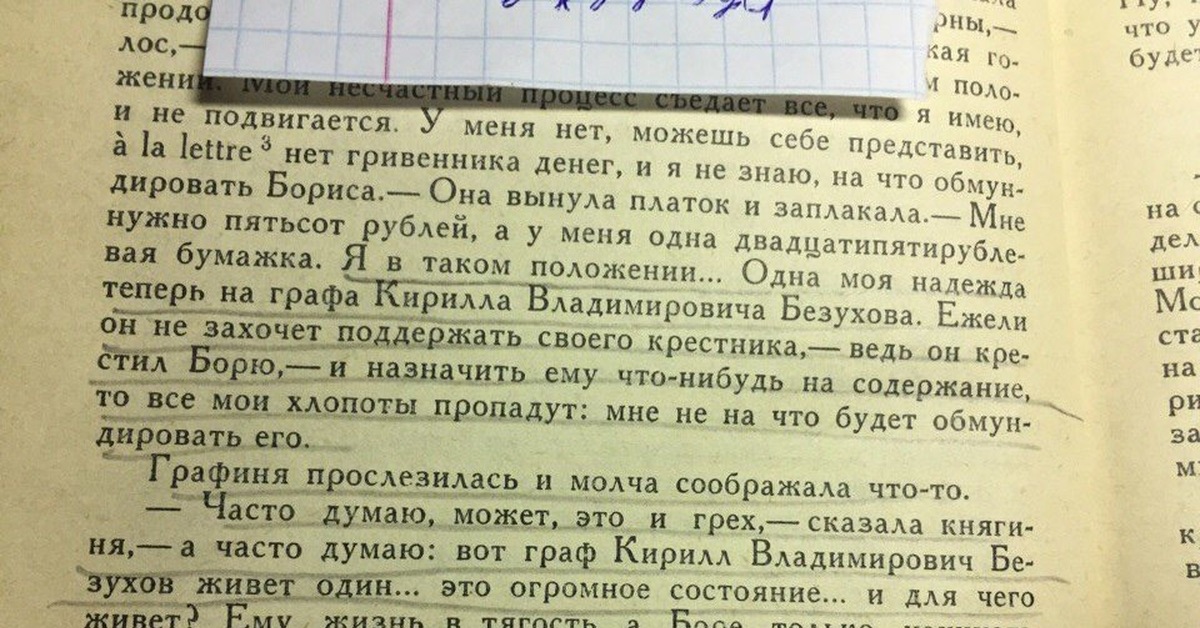 продо рны,—
лос,— кая го-
жении. Мой несчастный процесс съедает все, что я имею,
и не подвигается. У меня нет, можешь себе представить,
à la lettre³ нет гривенника денег, и я не знаю, на что обмун-
дировать Бориса.— Она вынула платок и заплакала.— Мне
нужно пятьсот рублей, а у меня одна двадцатипятирубле-
вая бумажка. Я в таком положении... Одна моя надежда
теперь на графа Кирилла Владимировича Безухова. Ежели
он не захочет поддержать своего крестника,— ведь он кре-
стил Борю,— и назначить ему что-нибудь на содержание,
то все мои хлопоты пропадут: мне не на что будет обмун-
дировать его.
Графиня прослезилась и молча соображала что-то.
— Часто думаю, может, это и грех,— сказала княги-
ня,— а часто думаю: вот граф Кирилл Владимирович Бе-
зухов живет один... это огромное состояние... и для чего
живет? Ему жизнь в тягость, а Боре только
что у
будет
на
дел
ши
Мо
ста
на
ри
за
м
к
в